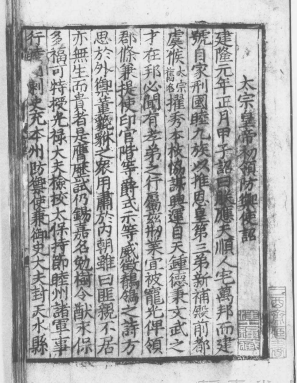 太宗皇帝初領防禦使詔
建隆元年正月甲子詔曰朕應天順人宅萬邦而建
號自家刑國睦九族以推恩皇第三弟新補殿前都
虞候太宗舊名擢秀本枝協謀興運自天鍾德秉文武之
才在邦必聞有孝弟之行屬茲創業宜被寵光俾領
郡條兼提使印官階等爵式示等威徵鶺鴒之詩方
思於外禦華萼之衆用肅於內朝雖曰匪親不居
亦無生而貴者是膺歷試仍錫嘉名勉樹令猷永保
多福可特授光祿大夫檢校太保持節睦州諸軍事
行睦州刺史充本州防禦使兼御史大夫封天水縣